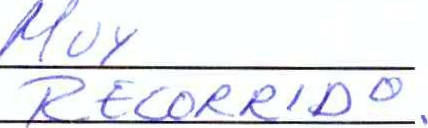 MUY
RECORRIDO.